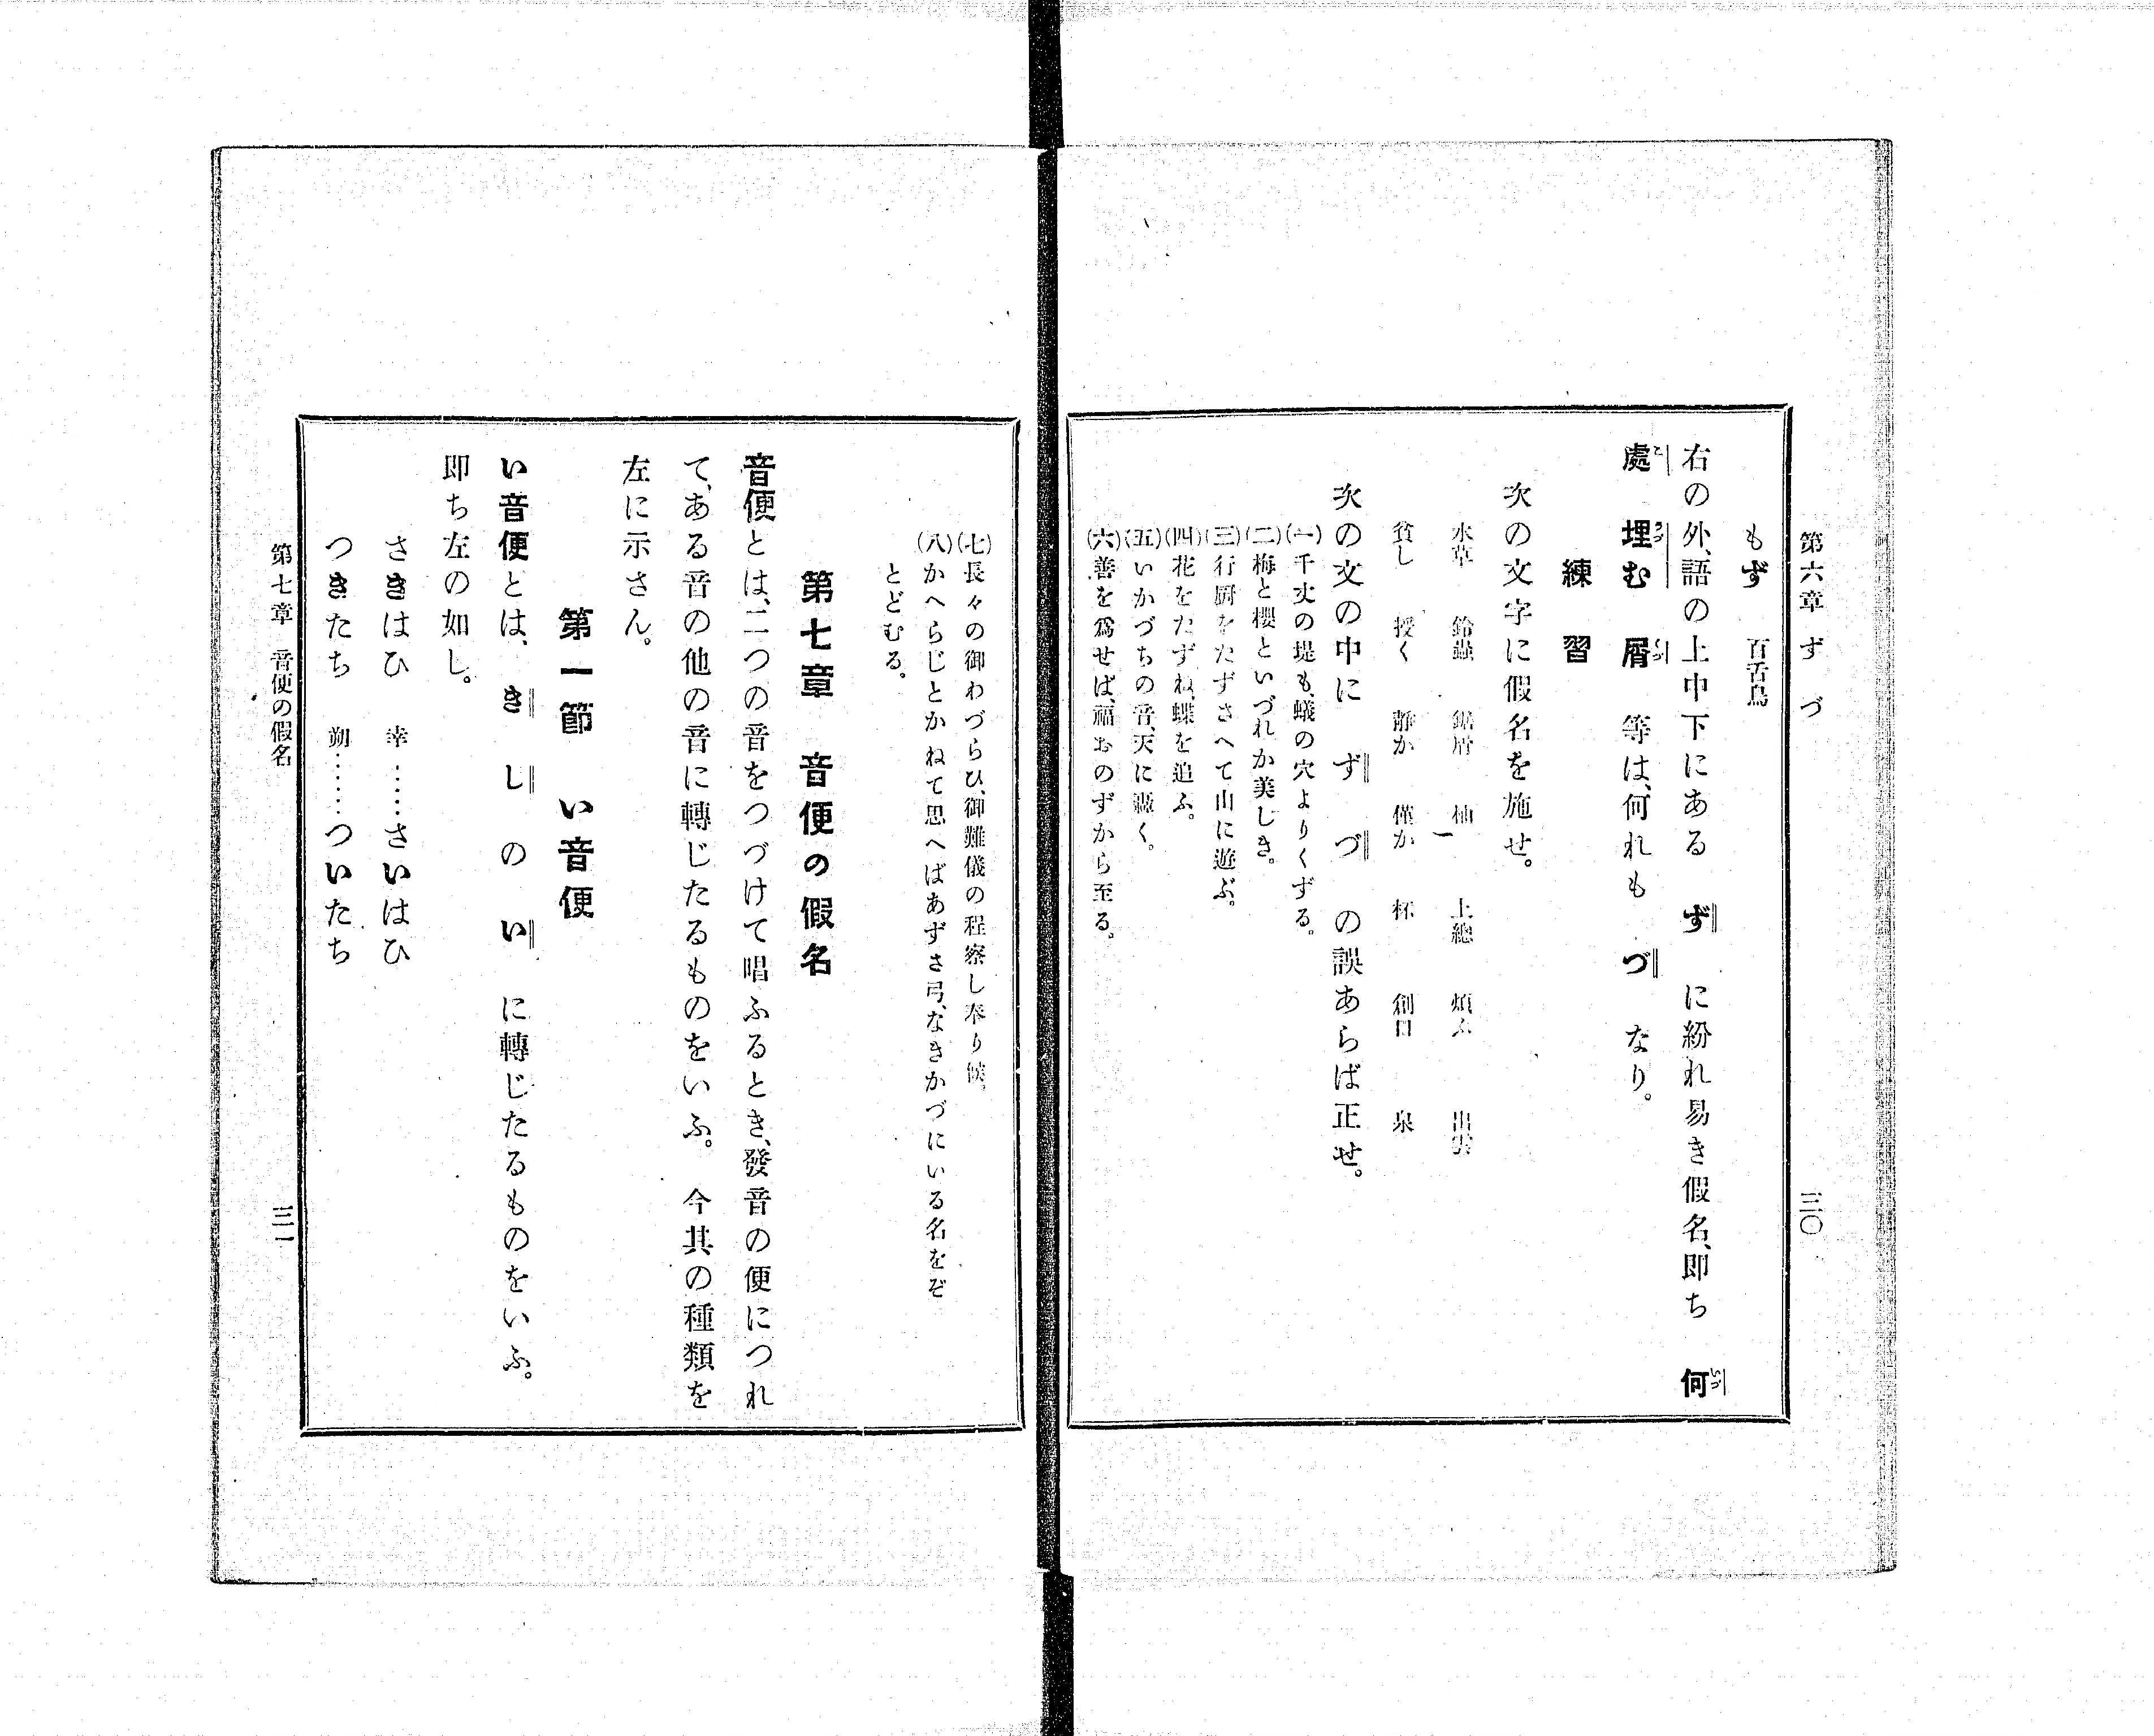 第六章　ず　づ　三〇
もず　百舌鳥
右の外、語の上中下にある　ず　に紛れ易き假名、即ち　何
處　埋む　屑　等は、何れも　づ　なり。
練習
次の文字に假名を施せ。
水草　鈴蟲　鋸屑　柚　上總　煩ふ　出雲
貧し　授く　靜か　僅か　杯　創口　泉
次の文の中に　ず　づ　の誤あらば正せ。
(一)千丈の堤も、蟻の穴よりくずる。
(二)梅と櫻といづれか美しき。
(三)行厨をたずさへて山に遊ぶ。
(四)花をたずね、蝶を追ふ。
(五)いかづちの音、天に轟く。
(六)善を爲せば、福おのずから至る。
(七)長々の御わづらひ、御難儀の程察し奉り候。
(八)かへらじとかねて思へばあずさ弓、なきかづにいる名をぞ
とどむる。
第七章　音便の假名
音便とは、二つの音をつづけて唱ふるとき、發音の便につれ
て、ある音の他の音に轉じたるものをいふ。今其の種類を
左に示さん。
第一節　い音便
い音便とは、き　し　の　い　に轉じたるものをいふ。
即ち左の如し。
さきはひ　幸……さいはひ
つきたち　朔……ついたち
第七章　音便の假名　三一